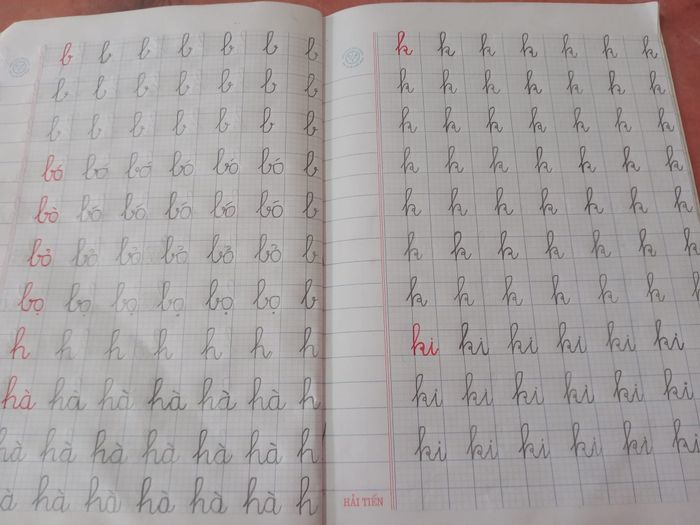 b b b b b b b
b b b b b b b
b b b b b b b
bó bó bó bó bó bó b
bò bó bó bó bó bó b
bỏ bỏ bỏ bỏ bỏ bỏ b
bọ bọ bọ bọ bọ bọ b
h h h h h h h
hà hà hà hà hà hà h
hà hà hà hà hà hà h
à hà hà hà hà hà h
k k k k k k k
k k k k k k k
k k k k k k k
k k k k k k k
k k k k k k k
k k k k k k k
k k k k k k
ki ki ki ki ki ki
ki ki ki ki ki ki
ki ki ki ki ki ki
HẢI TIẾN